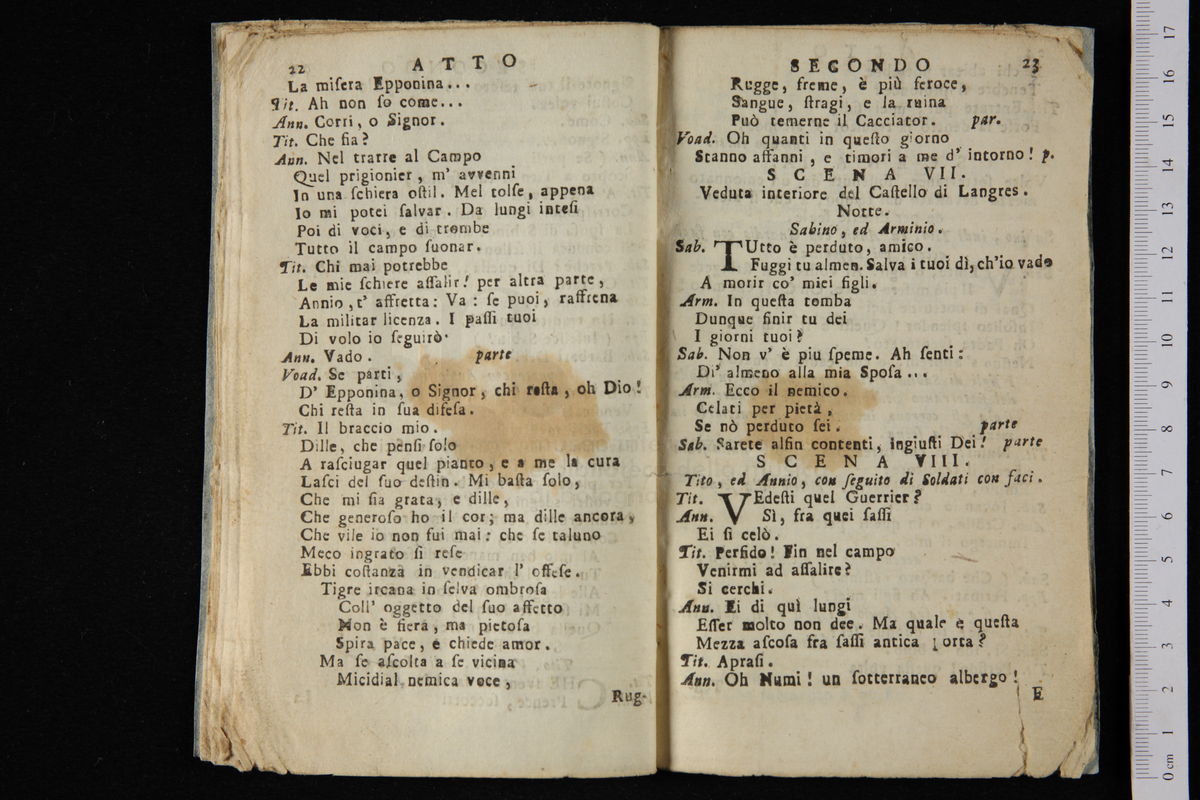 22 ATTO
La miſera Epponina...
Tit. Ah non ſo come...
Ann. Corri, o Signor.
Tit. Che fia?
Ann. Nel trarre al Campo
Quel prigionier, m' avvenni
In una ſchiera oſtil. Mel tolſe, appena
Io mi potei ſalvar. Da lungi inteſi
Poi di voci, e di trombe
Tutto il campo ſuonar.
Tit. Chi mai potrebbe
Le mie ſchiere aſſalir! per altra parte,
Annio, t' affretta: Va: ſe puoi, raffrena
La militar licenza. I paſſi tuoi
Di volo io ſeguirò.
Ann. Vado. parte
Voad. Se parti,
D' Epponina, o Signor, chi reſta, oh Dio!
Chi reſta in ſua difeſa.
Tit. Il braccio mio.
Dille, che penſi ſolo
A raſciugar quel pianto, e a me la cura
Laſci del ſuo deſtin. Mi baſta ſolo,
Che mi ſia grata, e dille,
Che generoſo ho il cor; ma dille ancora,
Che vile io non fui mai: che ſe taluno
Meco ingrato ſi reſe
Ebbi coſtanza in vendicar l' offeſe.
Tigre ircana in ſelva ombroſa
Coll' oggetto del ſuo affetto
Non è fiera, ma pietoſa
Spira pace, e chiede amor.
Ma ſe aſcolta a ſe vicina
Micidial nemica voce,
Rug-
SECONDO 23
Rugge, freme, è più feroce,
Sangue, ſtragi, e la ruina
Può temerne il Cacciator. par.
Voad. Oh quanti in queſto giorno
Stanno affanni, e timori a me d' intorno! p.
SCENA VII.
Veduta interiore del Caſtello di Langres.
Notte.
Sabino, ed Arminio.
Sab. TUtto è perduto, amico.
Fuggi tu almen. Salva i tuoi dì, ch'io vado
A morir co' miei figli.
Arm. In queſta tomba
Dunque finir tu dei
I giorni tuoi?
Sab. Non v' è piu ſpeme. Ah ſenti:
Di' almeno alla mia Spoſa...
Arm. Ecco il nemico.
Celati per pietà,
Se nò perduto ſei. parte
Sab. Sarete alfin contenti, ingiuſti Dei! parte
SCENA VIII.
Tito, ed Annio, con ſeguito di Soldati con faci.
Tit. VEdeſti quel Guerrier?
Ann. Sì, fra quei ſaſſi
Ei ſi celò.
Tit. Perfido! Fin nel campo
Venirmi ad aſſalire?
Si cerchi.
Ann. Ei di quì lungi
Eſſer molto non dee. Ma quale è queſta
Mezza aſcoſa fra ſaſſi antica orta?
Tit. Apraſi.
Ann. Oh Numi! un ſotterraneo albergo!
E
17
16
15
14
13
12
11
10
9
8
7
6
5
4
3
2
1
0 cm